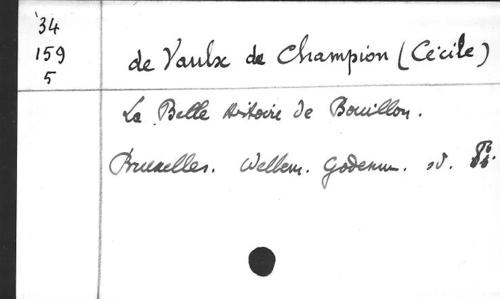 '34
159
5
de Vaulx de Champion (Cécile)
La Belle Histoire de Bouillon.
Bruxelles. Wellem. Godenne. sd.